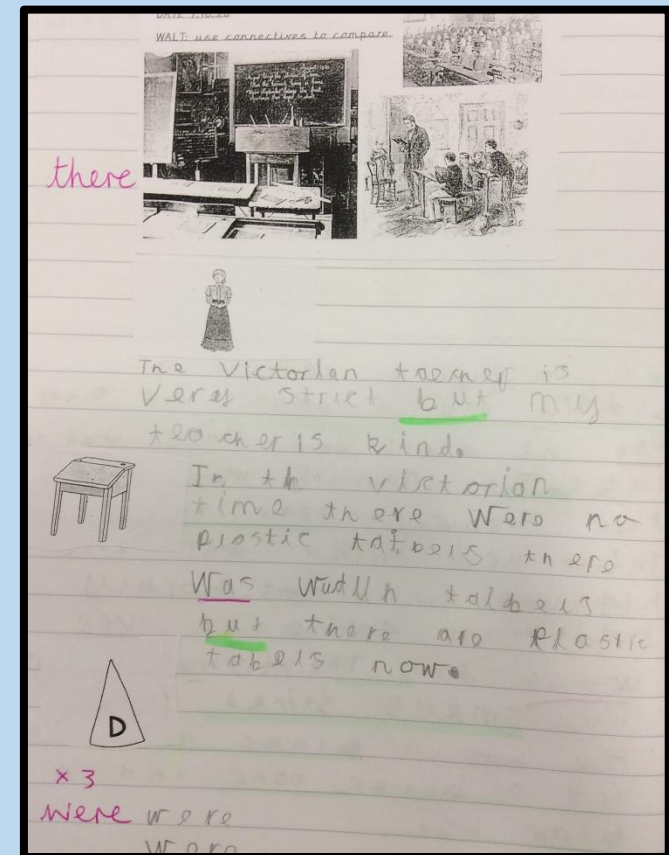 WALT: use connectives to compare
there
The Victorian taecher is
very strict but my
teocher is kind.
In th victorian
time there were no
plastic talbels there
was wuduh talbels
but there are plastic
tabels now.
D
x 3
were were
were